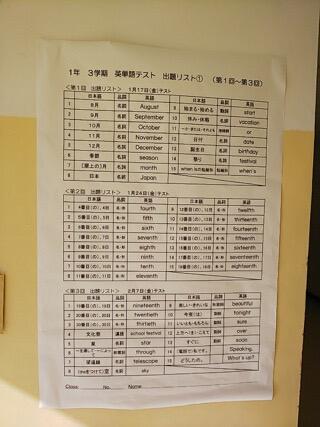 1年 3学期 英単語テスト 出題リスト① (第1回～第3回)
<第1回 出題リスト> 1月17日(金)テスト
日本語 品詞 英語 日本語 品詞 英語
1 8月 名詞 August 9 始まる・始める 動詞 start
2 9月 名詞 September 10 休み・休暇 名詞 vacation
3 10月 名詞 October 11 接続詞 or
4 11月 名詞 November 12 日付 名詞 date
5 12月 名詞 December 13 誕生日 名詞 birthday
6 季節 名詞 season 14 祭り 名詞 festival
7 (暦上の)月 名詞 month 15 when isの短縮形 短縮形 when's
8 日本 名詞 Japan
<第2回 出題リスト> 1月24日(金)テスト
日本語 品詞 英語 日本語 品詞 英語
1 4番目(の)、4日 名・形 fourth 9 12番目(の)、12日 名・形 twelfth
2 5番目(の)、5日 名・形 fifth 10 13番目(の)、13日 名・形 thirteenth
3 6番目(の)、6日 名・形 sixth 11 14番目(の)、14日 名・形 fourteenth
4 7番目(の)、7日 名・形 seventh 12 15番目(の)、15日 名・形 fifteenth
5 8番目(の)、8日 名・形 eighth 13 16番目(の)、16日 名・形 sixteenth
6 9番目(の)、9日 名・形 ninth 14 17番目(の)、17日 名・形 seventeenth
7 10番目(の)、10日 名・形 tenth 15 18番目(の)、18日 名・形 eighteenth
8 11番目(の)、11日 名・形 eleventh
<第3回 出題リスト> 2月7日(金)テスト
日本語 品詞 英語 日本語 品詞 英語
1 19番目(の)、19日 名・形 nineteenth 9 美しい・きれいな 形容詞 beautiful
2 20番目(の)、20日 名・形 twentieth 10 今夜(は) tonight
3 30番目(の)、30日 名・形 thirtieth 11 いいとも・もちろん sure
4 文化祭 連語 school festival 12 over
5 星 名詞 star 13 すぐに 副詞 soon
6 前置詞 through 14 (電話で)私です。 Speaking.
7 望遠鏡 名詞 telescope 15 どうしたの。 What's up?
8 空 名詞 sky
Class: No. Name: